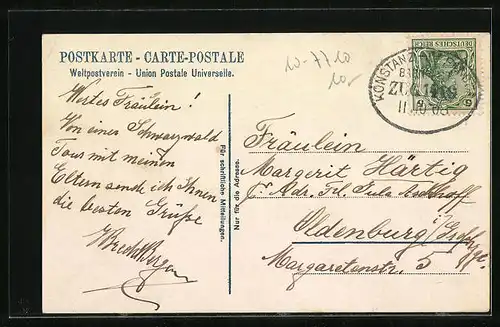 POSTKARTE - CARTE-POSTALE
Weltpostverein - Union Postale Universelle.
10-7710
10,-
DEUTSCHES REICH
KONSTANZ
BAHNPOST
ZUG
Wertes Fräulein!
Von einer Schwarzwald
Tour mit meinen
Eltern sende ich Ihnen
die besten Grüße
Für schriftliche Mitteilungen.
Nur für die Adresse.
Fräulein
Margerit Härtig
Adr. Frl. Jula
Oldenburg i/Grhzgt.
Margaretenstr. 5